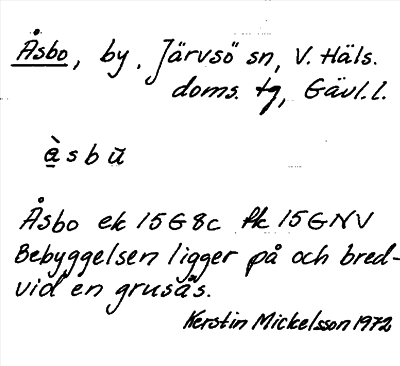 Åsbo, by, Järvsö sn, V. Häls.
doms. tg, Gävl. l.
à̱ s b ŭ
Åsbo ek 15G8c fk 15GNV
Bebyggelsen ligger på och bred-
vid en grusås.
Kerstin Mickelsson 1972